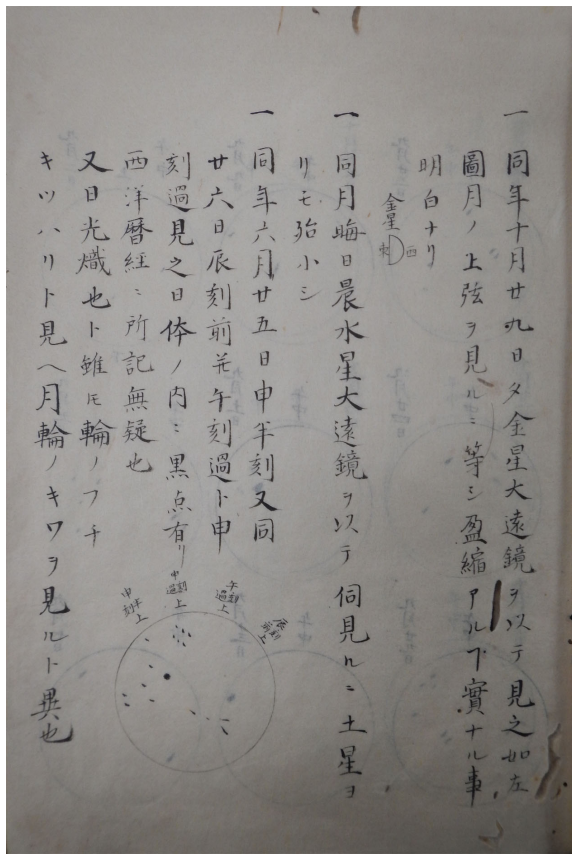 一同年十月廿九日夕金星大遠鏡ヲ以テ見之如左
圖月ノ上弦ヲ見ルニ等シ盈縮アルヿ實ナル事
明白ナリ
金星
東 西
一同月晦日晨水星大遠鏡ヲ以テ伺見ルニ土星ヨ
リモ殆小シ
一同年六月廿五日申半刻又同
廿六日辰刻前并午刻過ト申
刻過見之日体ノ内ニ黒点有リ
西洋暦経ニ所記無疑也
又日光熾也ト雖モ輪ノフチ
キツハリト見ヘ月輪ノキワヲ見ルト異也
辰刻前上
午刻過上
申刻過上
申半刻上